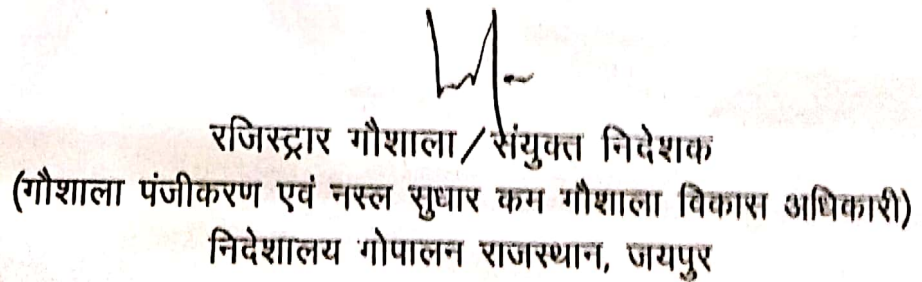 रजिस्ट्रार गौशाला/संयुक्त निदेशक
(गौशाला पंजीकरण एवं नस्ल सुधार कम गौशाला विकास अधिकारी)
निदेशालय गोपालन राजस्थान, जयपुर